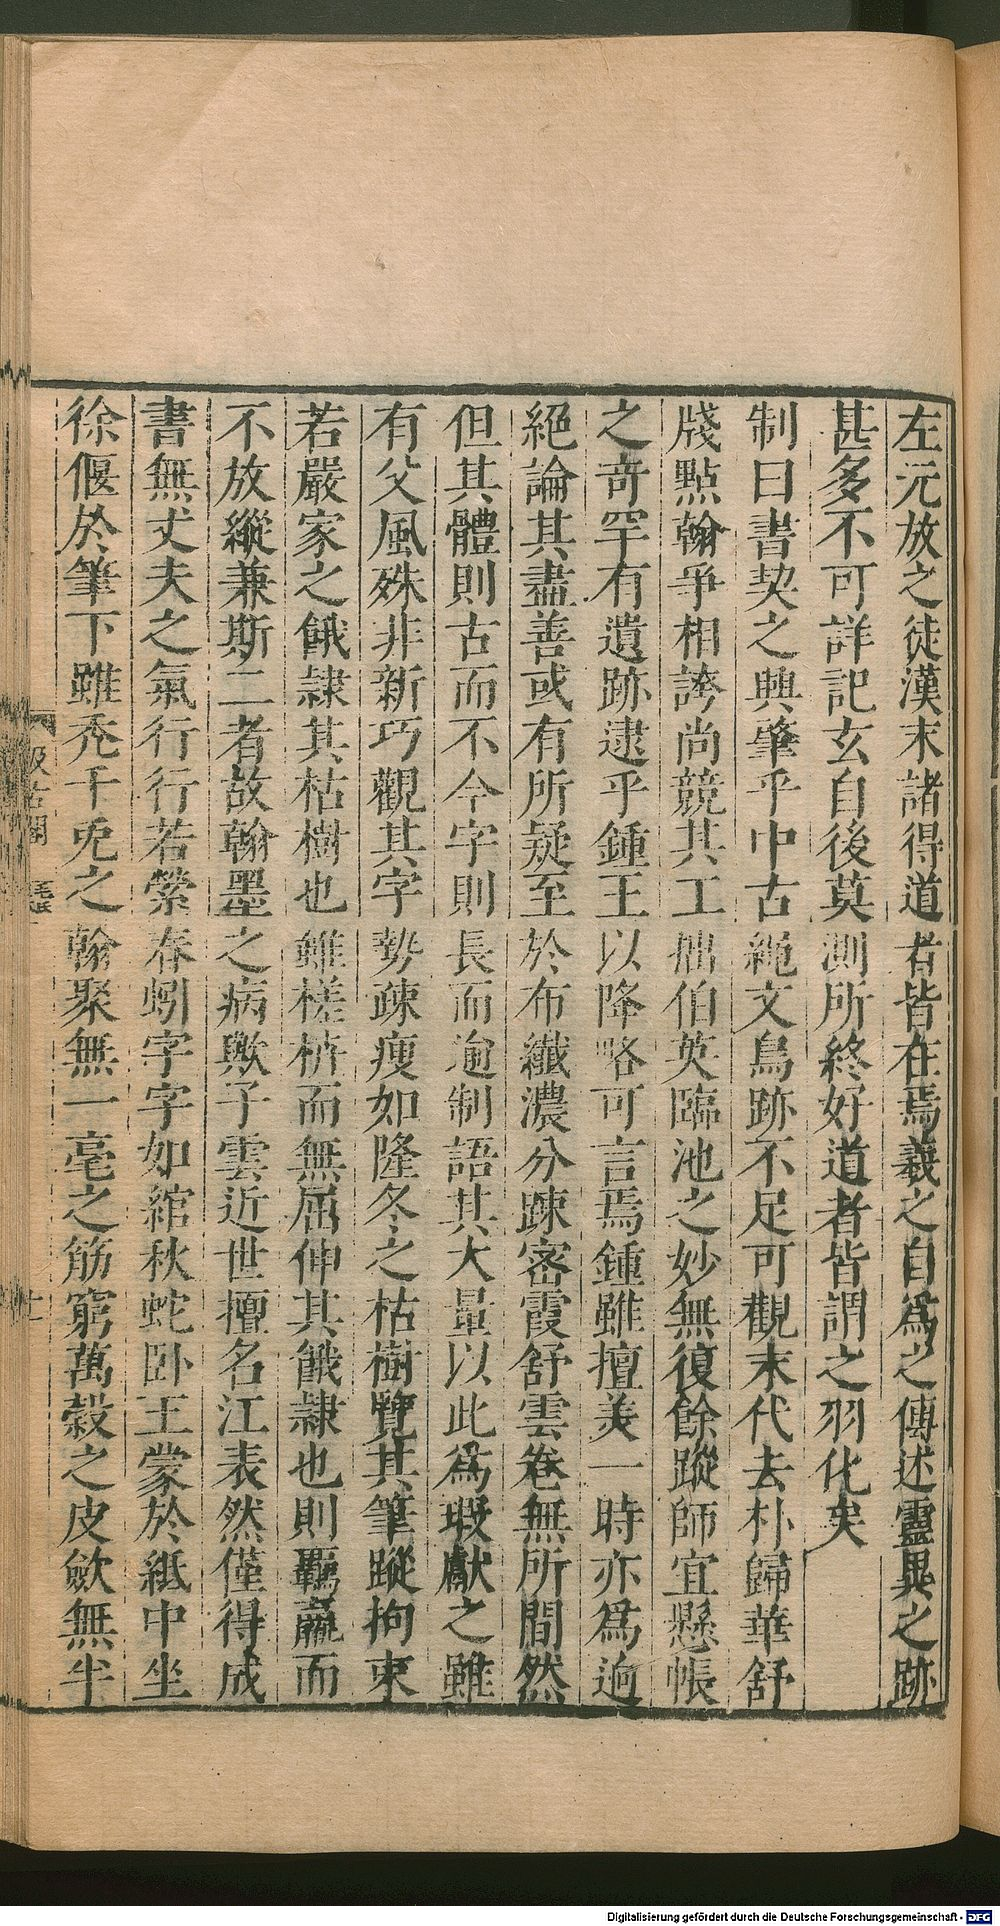 左元放之徒漢末諸得道者皆在焉羲之自為之傳述靈異之跡
甚多不可詳記玄自後莫測所終好道者皆謂之羽化矣
制曰書契之興肇乎中古繩文鳥跡不足可觀末代去朴歸華舒
牋點翰爭相誇尚競其工拙伯英臨池之妙無復餘蹤師宜懸帳
之奇罕有遺跡逮乎鍾王以降略可言焉鍾雖擅美一時亦為迥
絕論其盡善或有所疑至於布纖濃分踈密霞舒雲卷無所間然
但其體則古而不今字則長而逾制語其大量以此為瑕獻之雖
有父風殊非新巧觀其字勢疎瘦如隆冬之枯樹覽其筆蹤拘束
若嚴家之餓隸其枯樹也雖槎枿而無屈伸其餓隸也則羈羸而
不放縱兼斯二者故翰墨之病歟子雲近世擅名江表然僅得成
書無丈夫之氣行行若縈春蚓字字如綰秋蛇臥王蒙於紙中坐
徐偃於筆下雖禿千兎之翰聚無一毫之筋窮萬穀之皮歛無半
汲古閣
毛氏
Digitalisierung gefördert durch die Deutsche Forschungsgemeinschaft - DFG